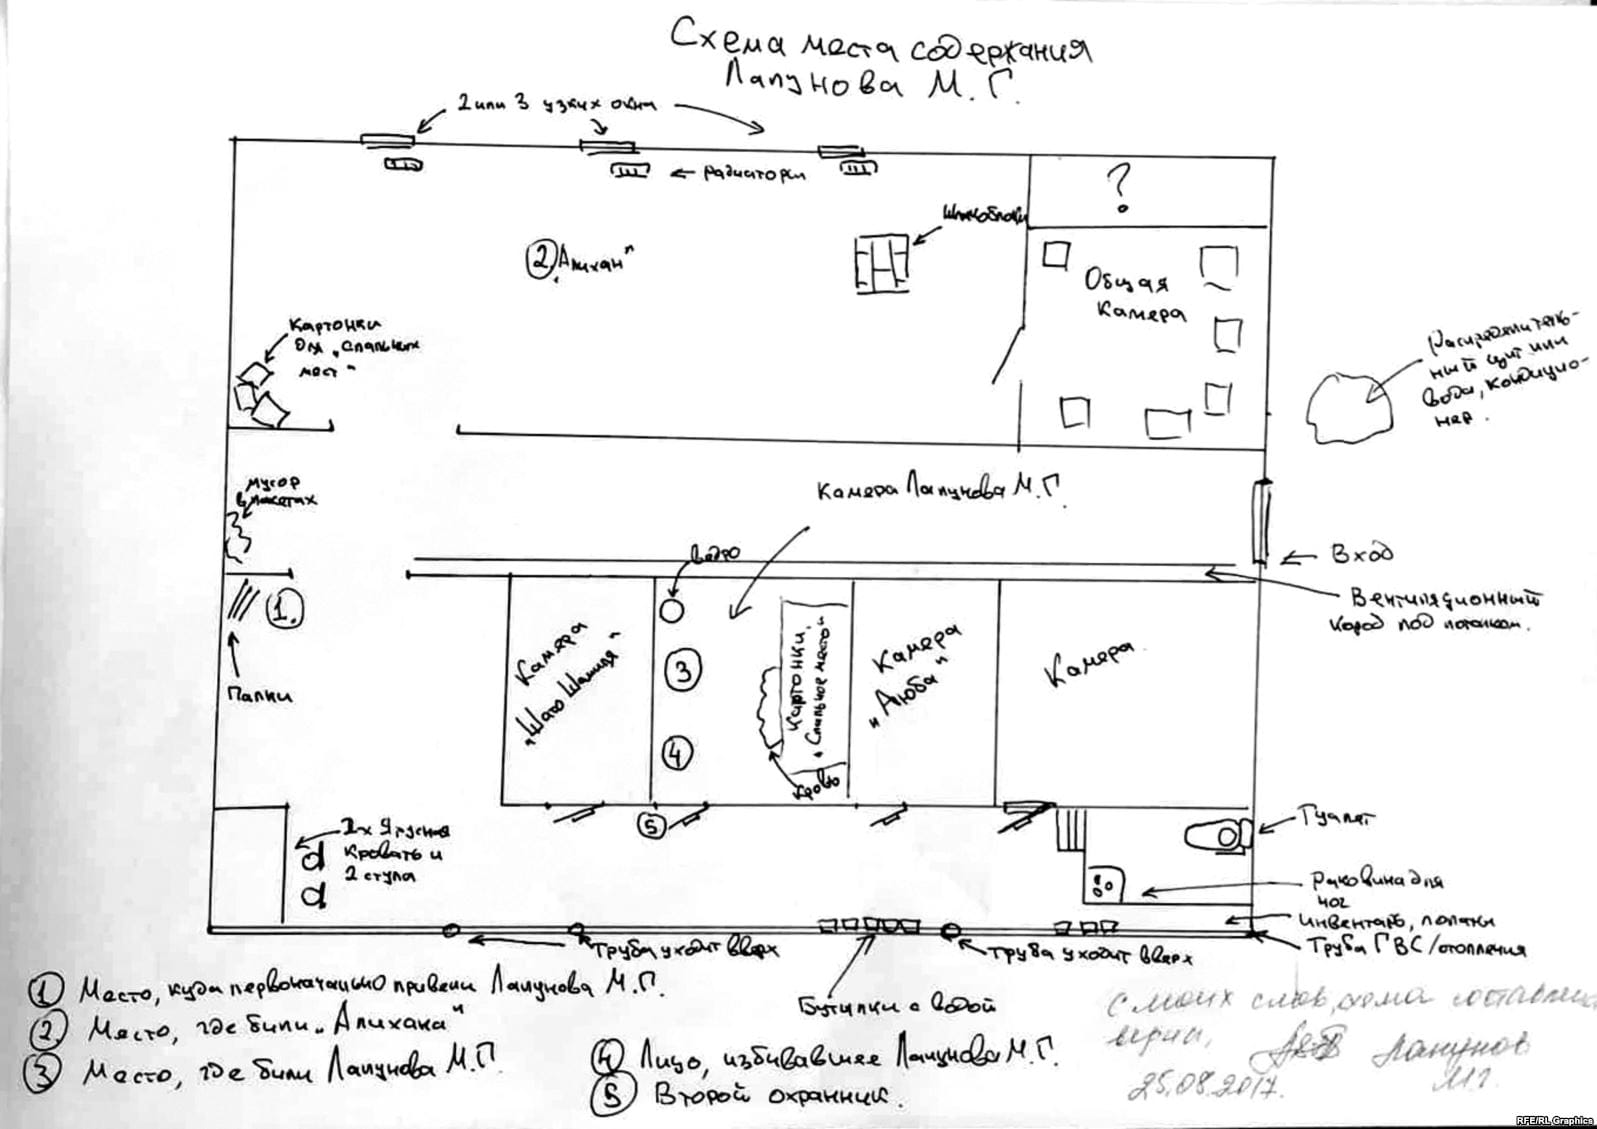 Схема места содержания
Лапунова М. Г.
2 или 3 узких окна
← радиаторы
?
Шлакоблоки
2 „Алихан"
Общая
камера
Картонки
для „спальных
мест"
Распределитель-
ный щит или
вода, кондицио-
нер.
мусор
в пакетах
Камера Лапунова М. Г.
Вход
ведро
Вентиляционный
короб под потолком.
1.
Палки
Камера
„Шаго Шамиля"
3
4
Картонки,
„Спальное место"
кровь
Камера
„Аюба"
Камера
5
2х ярусная
кровать и
2 стула
Туалет
раковина для
ног
инвентарь, лопаты
Труба ГВС/отопления
Труба уходит вверх
Труба уходит вверх
Бутылки с водой
1 Место, куда первоначально привели Лапунова М. Г.
2. Место, где били „Алихана"
3 Место, где били Лапунова М. Г.
4 Лицо, избивавшее Лапунова М. Г.
5 Второй охранник.
С моих слов, схема составлена
верна,
Лапунов
М.Г.
25.08.2017.
RFE/RL Graphics